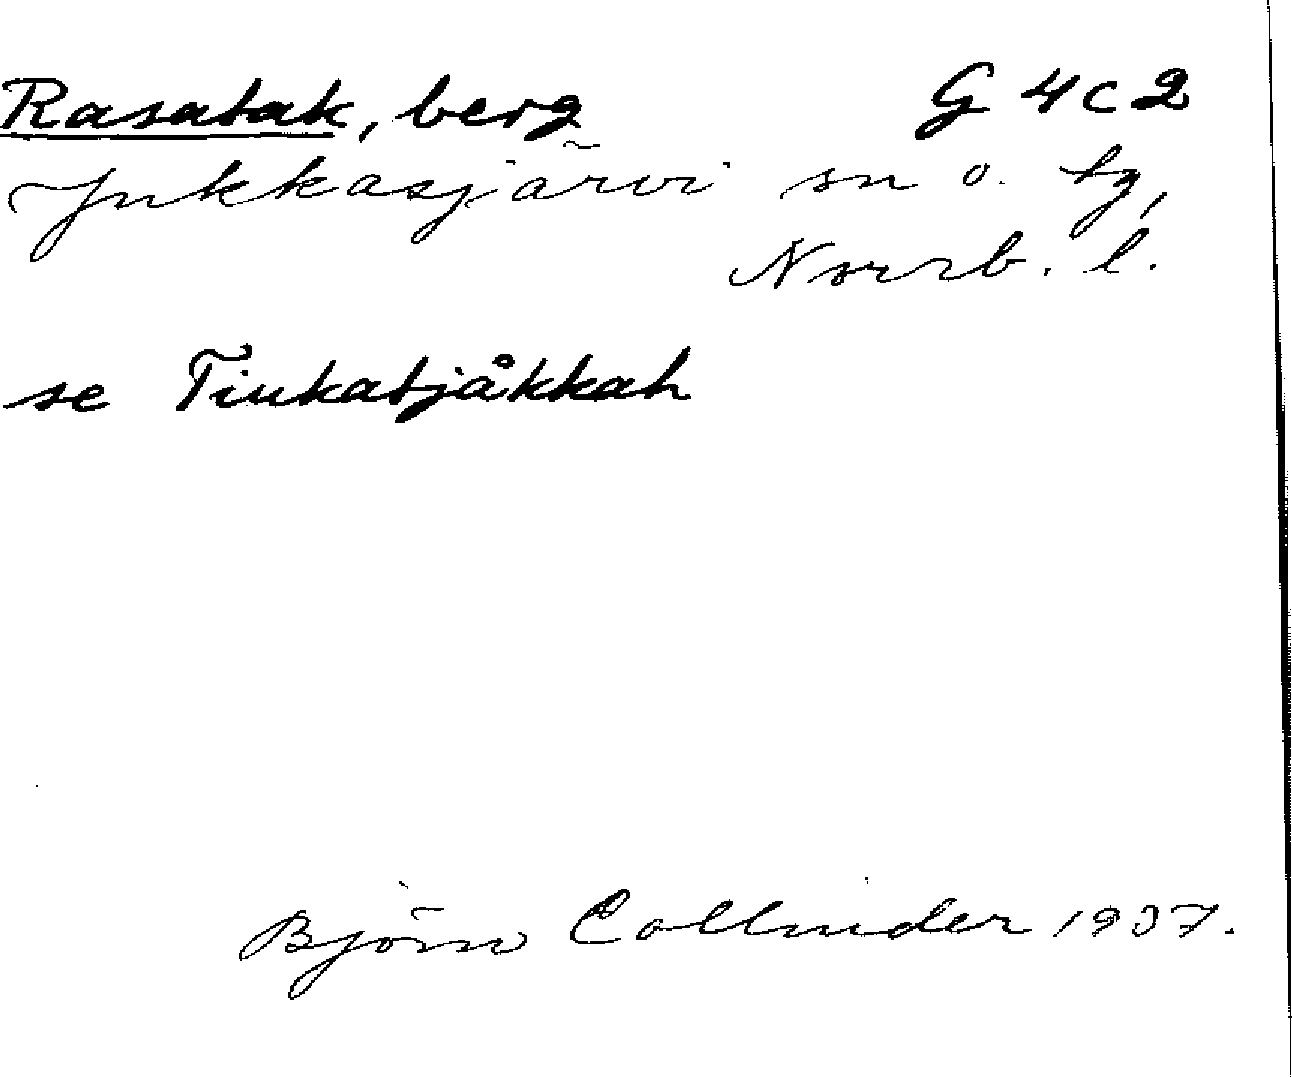 Rasatak, berg G 4 c 2
Jukkasjärvi sn o. tg,
Norrb. l.
se Tiukatjåkkah
Björn Collinder 1937.